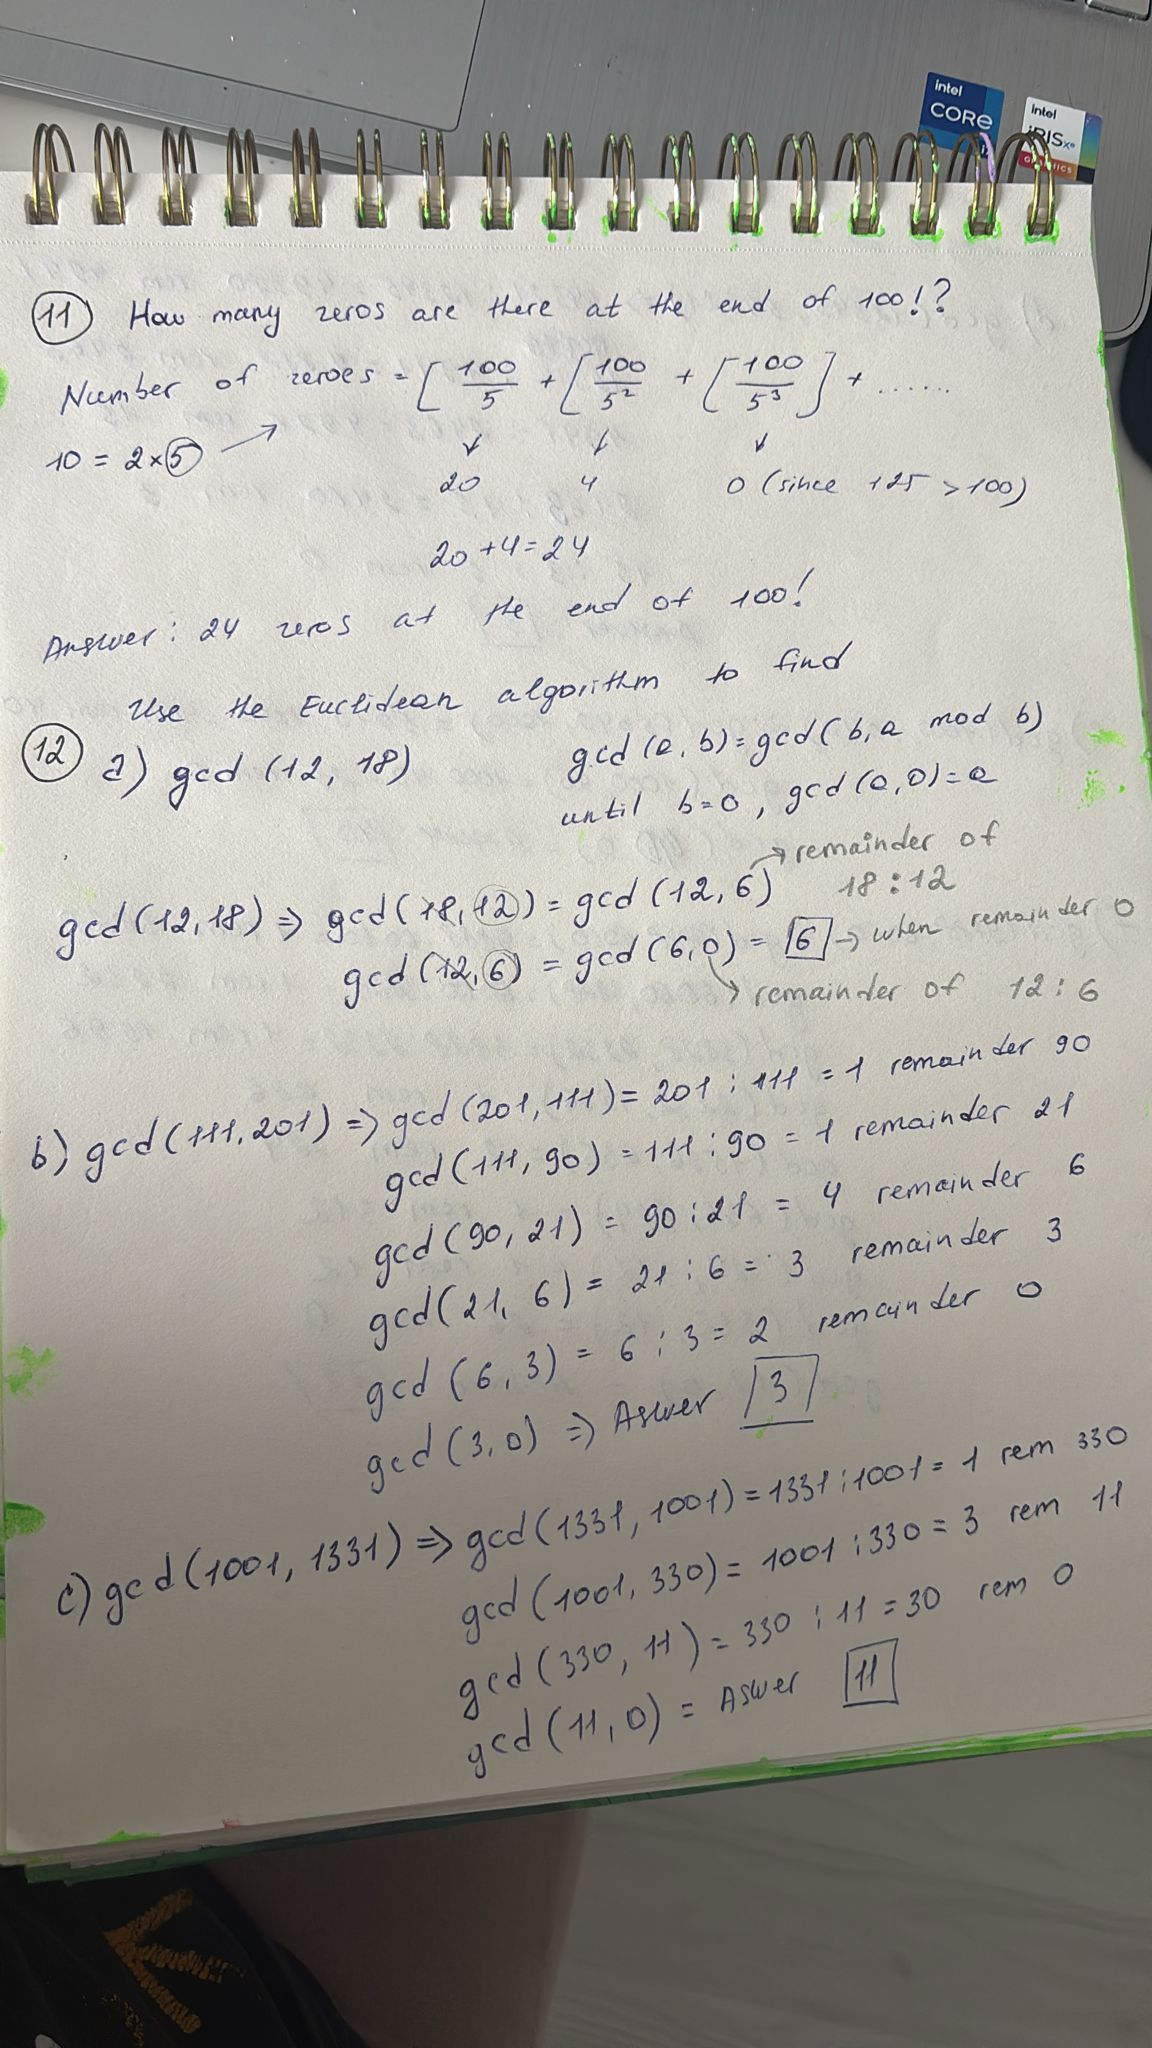 intel
CORE
intel
iRISxe
GRAPHICS
11 How many zeros are there at the end of 100!?
Number of zeroes = [100/5 + [100/5² + [100/5³] + ......
10 = 2×5
20 4 0 (since 125 > 100)
20 + 4 = 24
Answer: 24 zeros at the end of 100!
Use the Euclidean algorithm to find
12 a) gcd (12, 18)
gcd (a, b) = gcd (b, a mod b)
until b=0, gcd (a, 0) = a
gcd (12, 18) ⇒ gcd (18, 12) = gcd (12, 6) → remainder of 18 : 12
gcd (12, 6) = gcd (6, 0) = 6 → when remainder 0
→ remainder of 12 : 6
b) gcd (111, 201) ⇒ gcd (201, 111) = 201 : 111 = 1 remainder 90
gcd (111, 90) = 111 : 90 = 1 remainder 21
gcd (90, 21) = 90 : 21 = 4 remainder 6
gcd (21, 6) = 21 : 6 = 3 remainder 3
gcd (6, 3) = 6 : 3 = 2 remainder 0
gcd (3, 0) ⇒ Aswer 3
c) gcd (1001, 1331) ⇒ gcd (1331, 1001) = 1331 : 1001 = 1 rem 330
gcd (1001, 330) = 1001 : 330 = 3 rem 11
gcd (330, 11) = 330 : 11 = 30 rem 0
gcd (11, 0) = Aswer 11